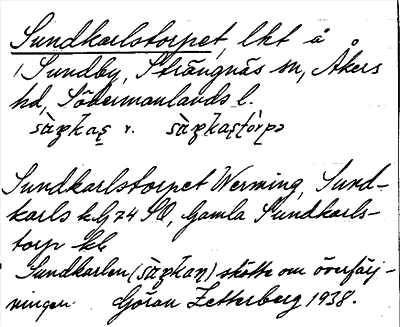 Sundkarlstorpet, lht å
Sundby, Strängnäs sn, Åkers
hd, Södermanlands l.
sùn̥kas̱ v. sùn̥kas̱tòrpə
Sundkarlstorpet Werming, Sund-
karls k.G74 SÖ, Gamla Sundkarls-
torp kk
Sundkarlen (sùn̥kan̥) skötte om överfärj-
ningen. Göran Zetterberg 1938.